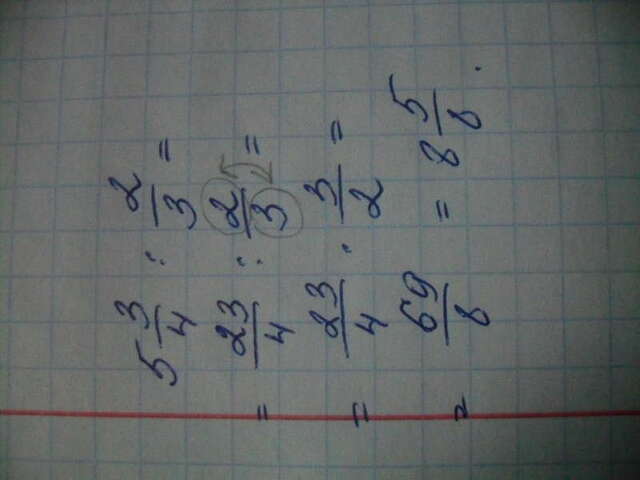 5 3/4 : 2/3 =
= 23/4 : 2/3 =
= 23/4 · 3/2 =
= 69/8 = 8 5/8.